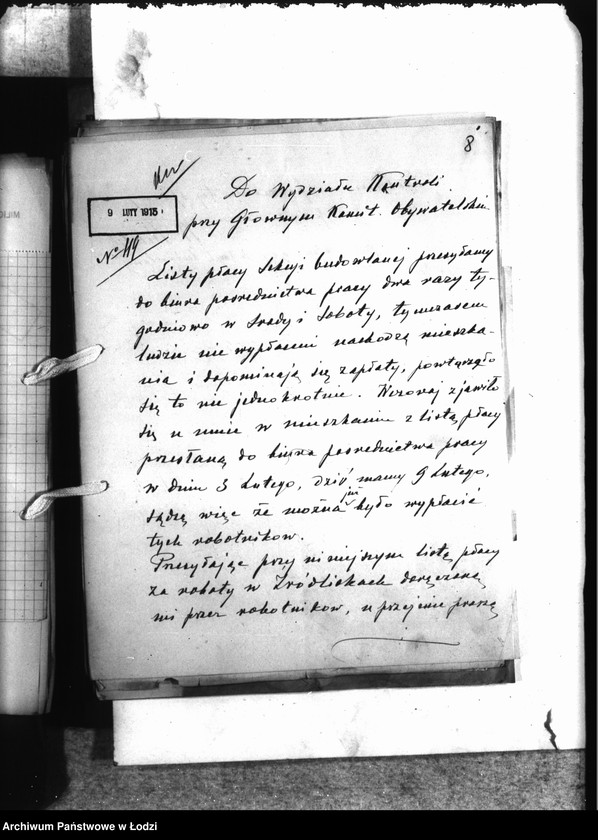 8
Do Wydziału Kontroli
9 LUTY 1915
przy Głownym Komit. Obywatelskim
№ 119
Listy płacy Sekcji budowlanej przesyłamy
do biura posrednictwa pracy dwa razy ty-
godniowo w Srody i Soboty, tymczasem
ludzie nie wypłaceni nachodzą mieszka-
nia i dopominają się zapłaty, powtarzało
się to nie jednokrotnie. Wczoraj zjawiło
się u mnie w mieszkaniu z listą płacy
przesłaną do biura posrednictwa pracy
w dniu 3 Lutego, dziś mamy 9 Lutego,
sądzę więc że można już było wypłacić
tych robotnikow.
Przesyłając przy niniejszym listę płacy
za roboty w Źródliskach doręczoną
mi przez robotnikow, uprzejmie proszę
Archiwum Państwowe w Łodzi